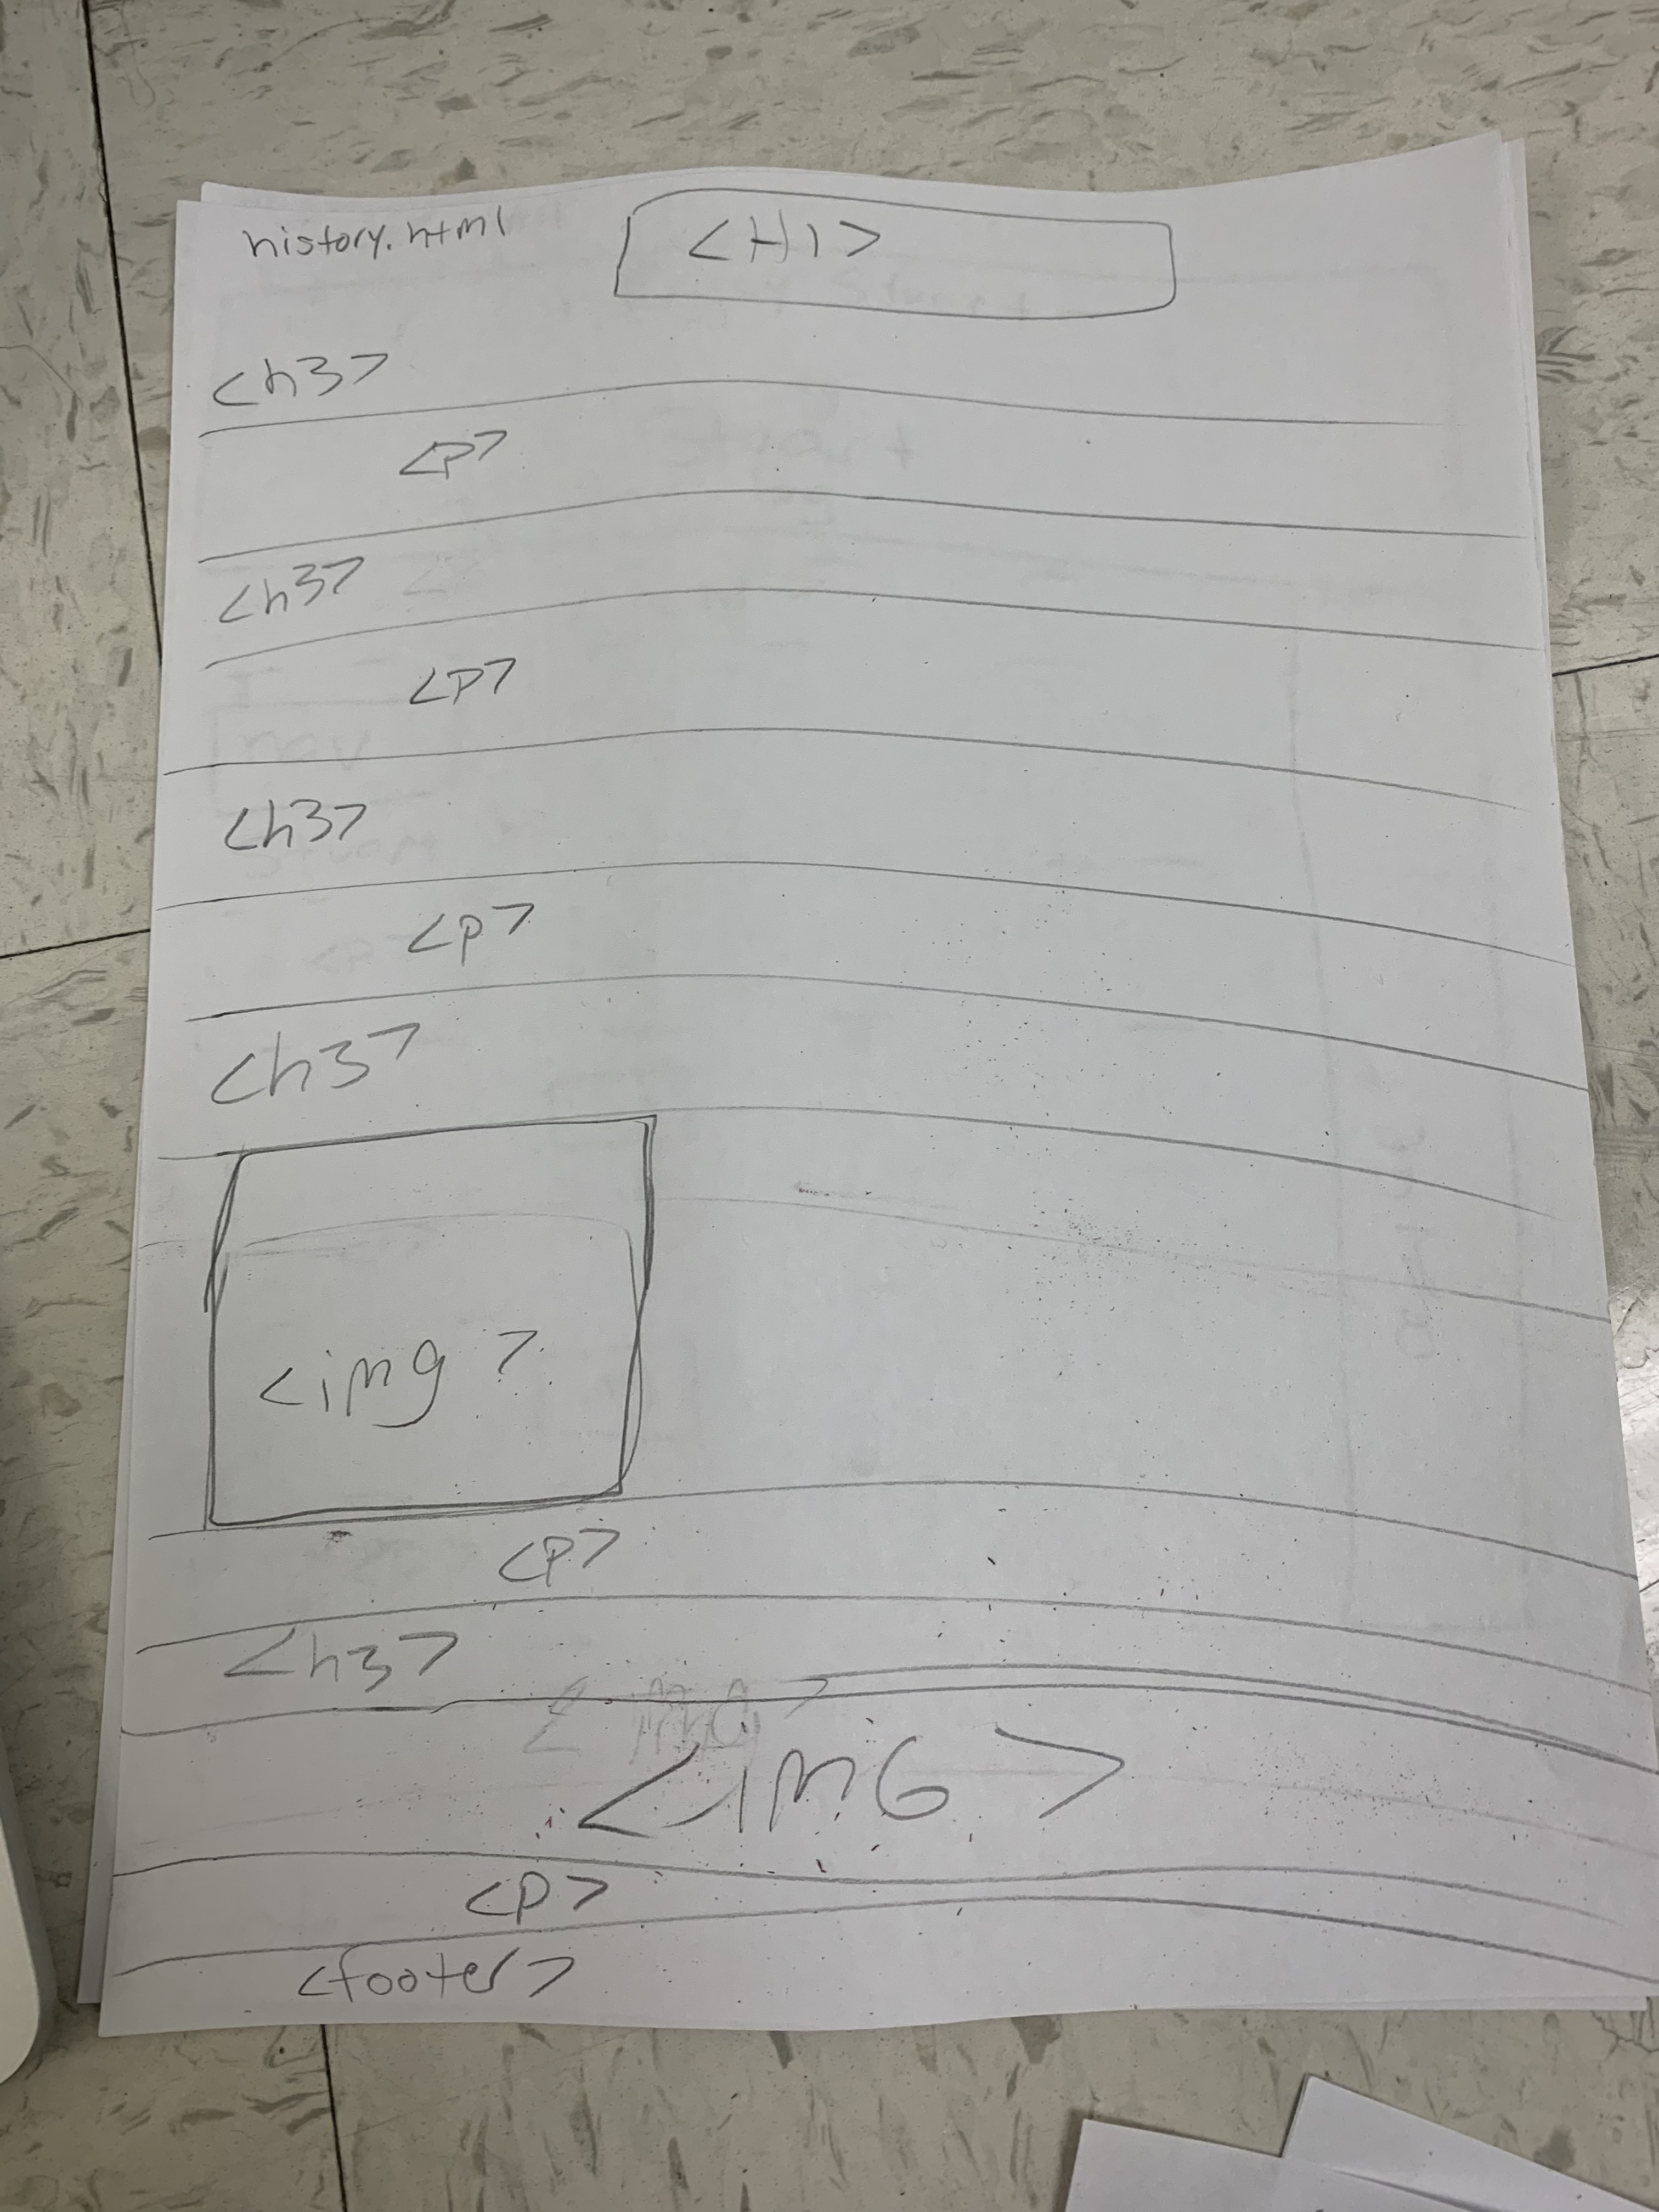 history.html
<H1>
<h3>
<p>
<h3>
<p>
<h3>
<p>
<h3>
<img>
<p>
<h3>
<imG>
<p>
<footer>